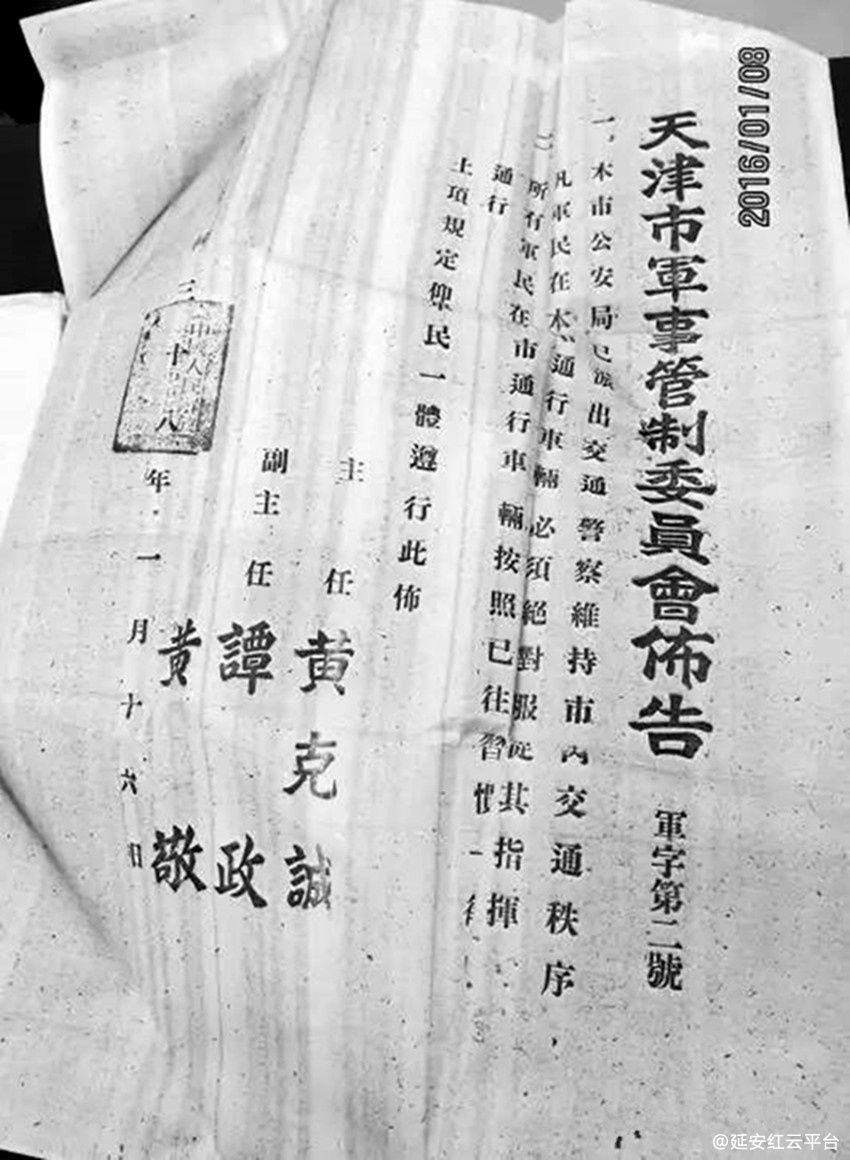 2016/01/08
天津市軍事管制委員會佈告 軍字第二號
一,本市公安局已派出交通警察維持市內交通秩序
凡軍民在本通行車輛必須絕對服從其指揮
所有軍民在市通行車輛按照已往習慣一
通行
上項規定仰民一體遵行此佈
主任 黃克誠
副主任 譚政
黃敬
三十八年一月十六日
@延安红云平台